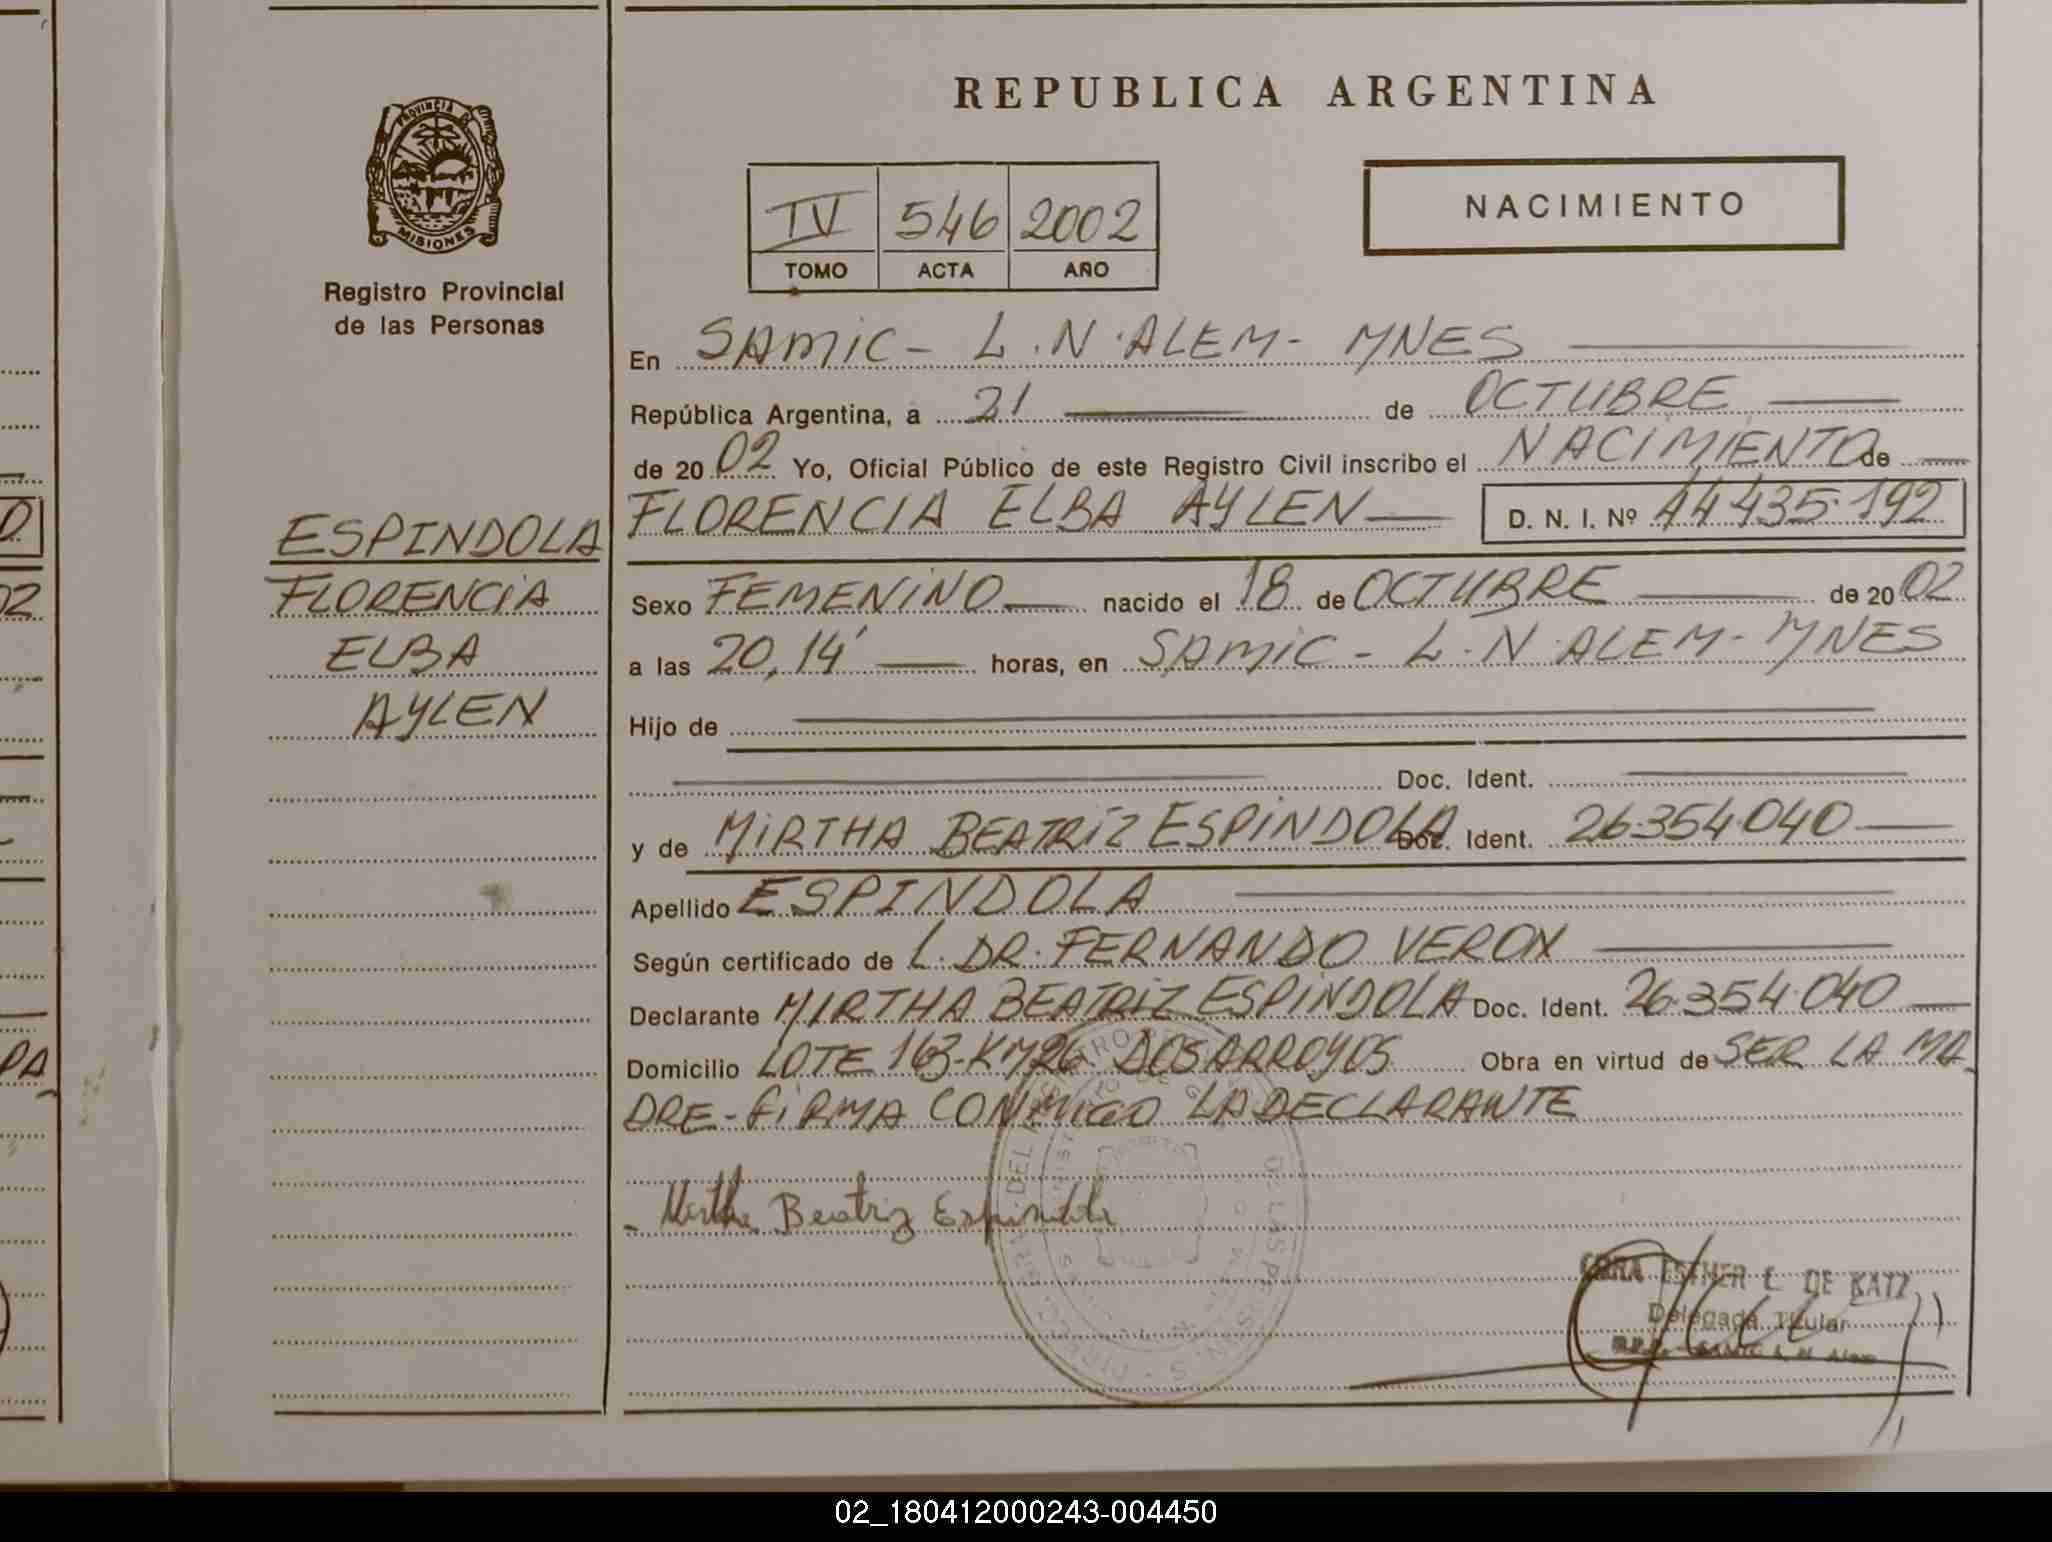 PROVINCIA DE
MISIONES
Registro Provincial
de las Personas
ESPINDOLA
FLORENCIA
ELBA
AYLEN
REPUBLICA ARGENTINA
IV 546 2002
TOMO ACTA AÑO
NACIMIENTO
En SAMIC - L.N. ALEM - MNES
República Argentina, a 21 de OCTUBRE
de 2002 Yo, Oficial Público de este Registro Civil inscribo el NACIMIENTO de
FLORENCIA ELBA AYLEN D. N. I. Nº 44 435.192
Sexo FEMENINO nacido el 18 de OCTUBRE de 2002
a las 20,14' horas, en SAMIC - L.N. ALEM - MNES
Hijo de
Doc. Ident.
y de MIRTHA BEATRIZ ESPINDOLA Doc. Ident. 26.354.040
Apellido ESPINDOLA
Según certificado de L. DR. FERNANDO VERON
Declarante MIRTHA BEATRIZ ESPINDOLA Doc. Ident. 26.354.040
Domicilio LOTE 163-KM26 DOS ARROYOS Obra en virtud de SER LA MA
DRE - FIRMA CONMIGO LA DECLARANTE
Mirtha Beatriz Espindola
ESTHER L. DE KATZ
Delegada Titular
02_180412000243-004450